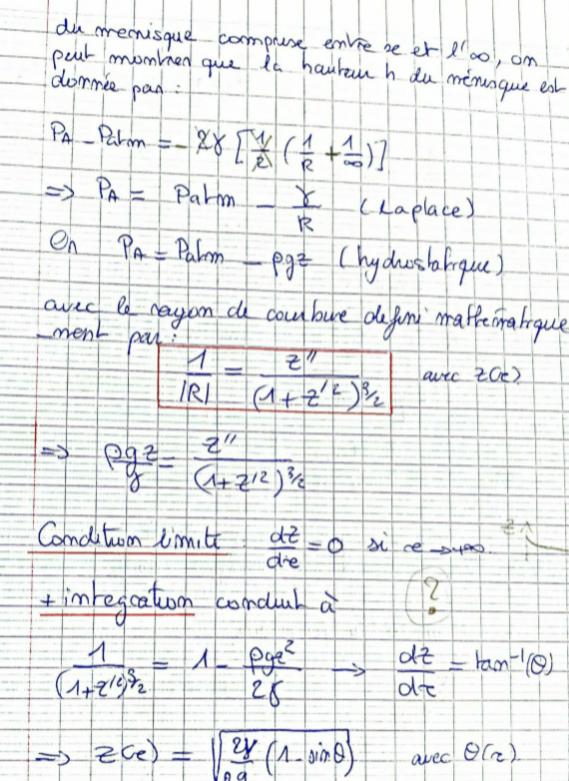 du menisque comprise entre x et l'∞, on
peut montrer que la hauteur h du ménisque est
donnée par :
P_A - Patm = - 2γ [ 1/2 ( 1/R + 1/∞ ) ]
=> P_A = Patm - γ/R (Laplace)
On P_A = Patm - ρgz (hydrostatique)
avec le rayon de courbure defini mathématique
-ment par :
1/|R| = z'' / (1 + z'²)^3/2 avec z(x)
=> ρgz/γ = z'' / (1 + z'²)^3/2
Condition limite dz/dx = 0 si x → +∞.
+ integration conduit à ?
1/(1+z'²)^3/2 = 1 - ρgz²/2γ → dz/dx = tan⁻¹(θ)
=> z(x) = √(2γ/ρg (1 - sinθ)) avec θ(x)